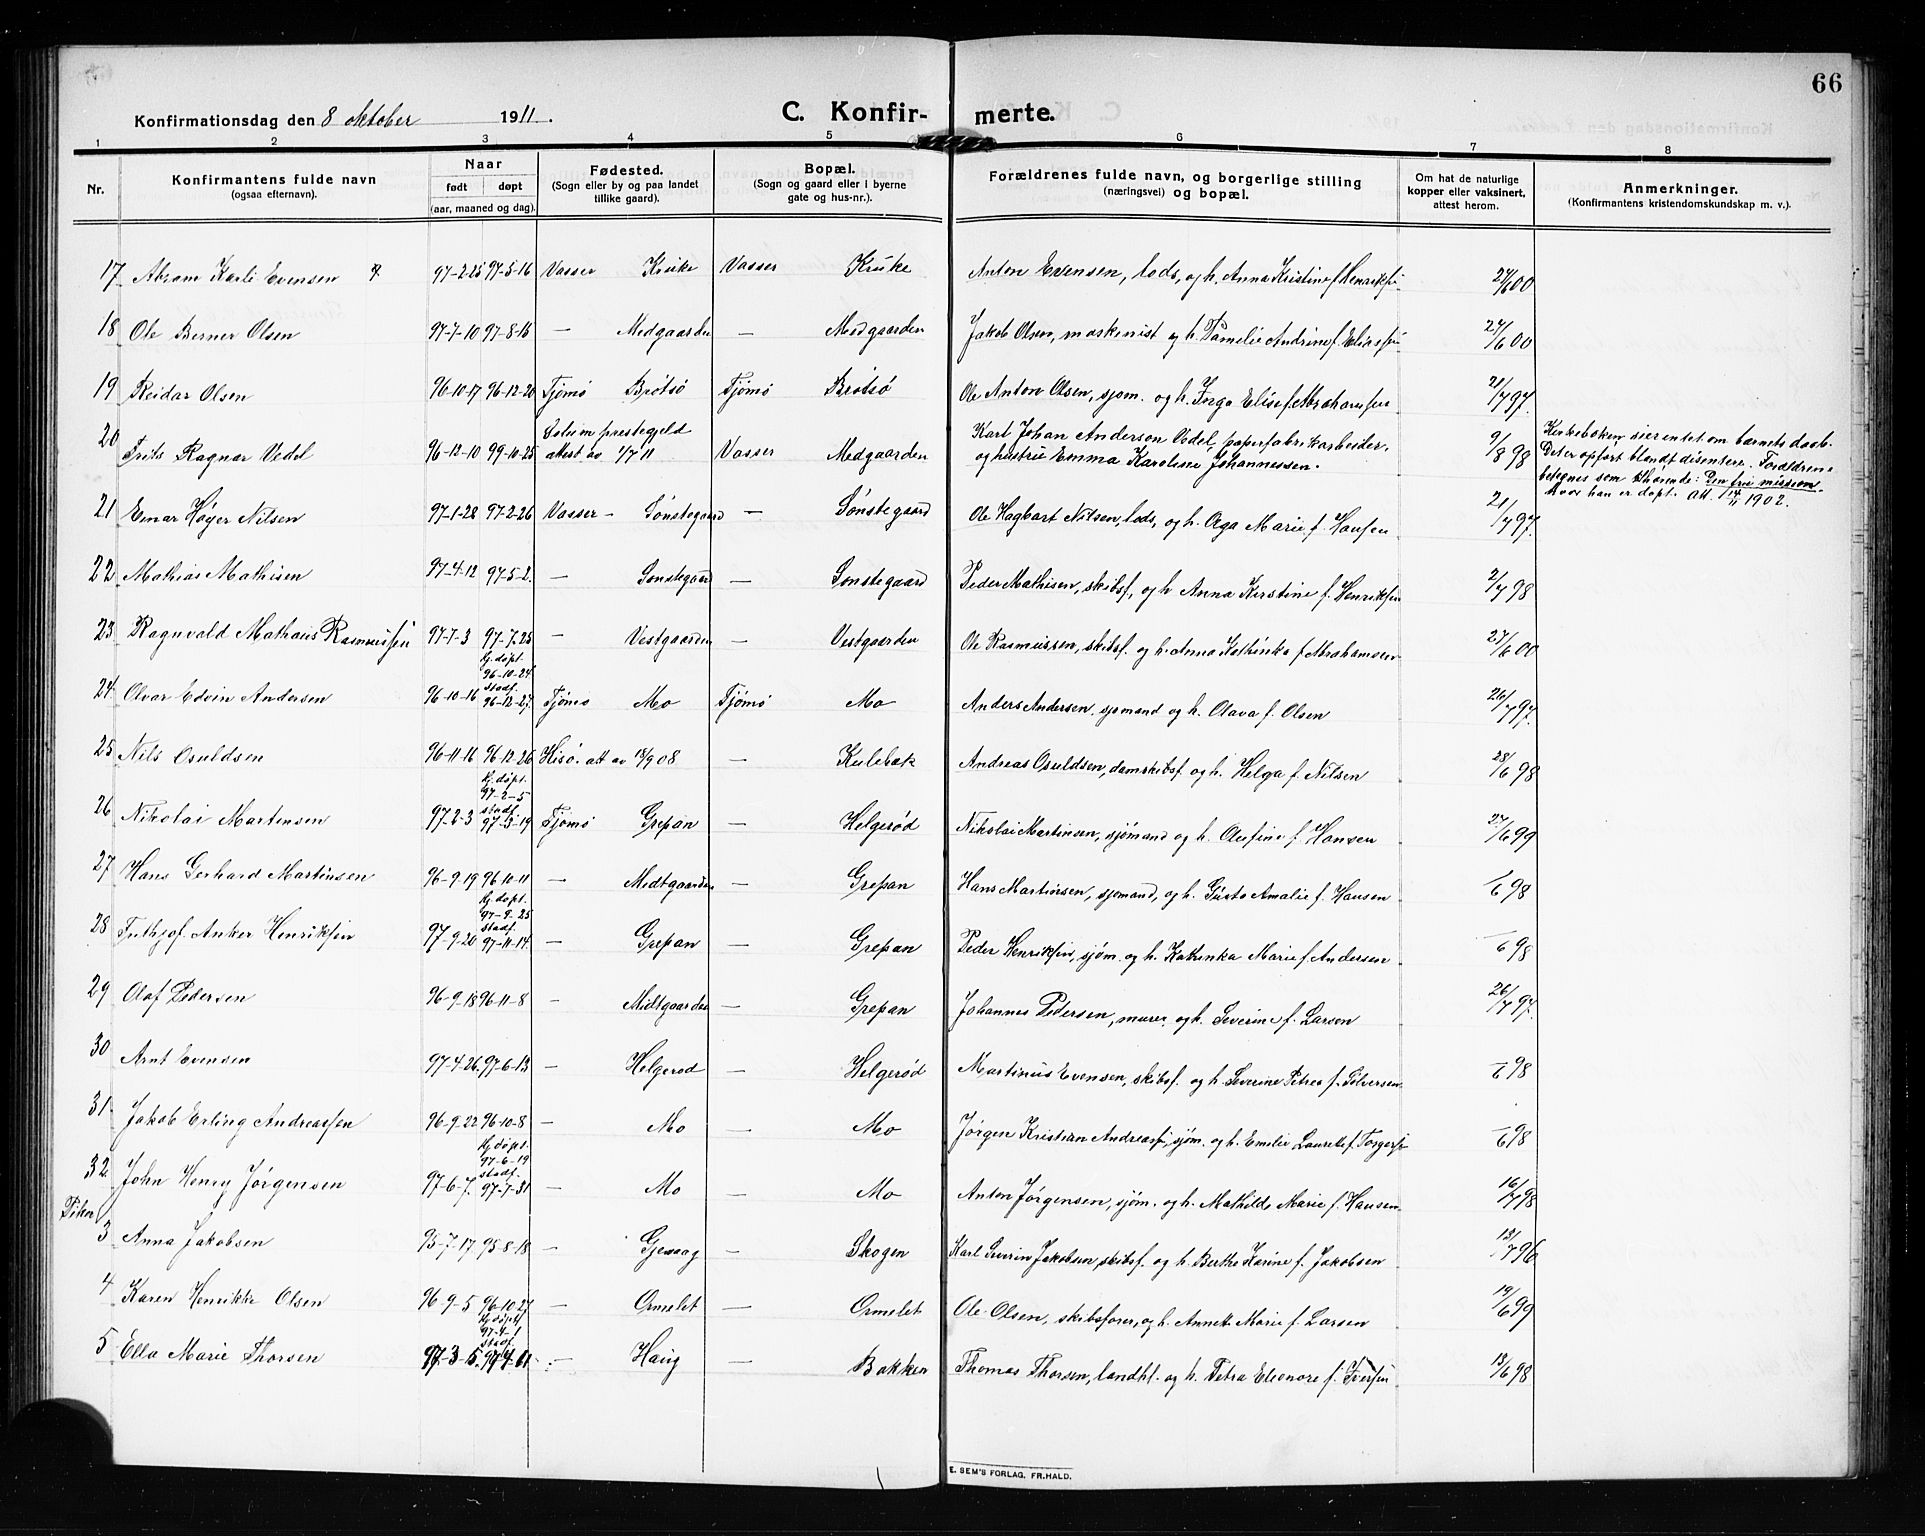 66
Konfirmationsdag den 8 oktober 1911.
C. Konfirmerte.
1 2 3 4 5 6 7 8
Nr. Konfirmantens fulde navn (ogsaa efternavn). Naar født døpt (aar, maaned og dag). Fødested. (Sogn eller by og paa landet tillike gaard). Bopæl. (Sogn og gaard eller i byerne gate og hus-nr.). Forældrenes fulde navn, og borgerlige stilling (næringsvei) og bopæl. Om hat de naturlige kopper eller vaksinert, attest herom. Anmerkninger. (Konfirmantens kristendomskundskap m. v.).
17 Abram Karli Evensen 97-2-25 97-5-16 Vasser Kruke Vasser Kruke Anton Evensen, lods, og h. Anna Kristine f. Henriks. 27/6 00
18 Ole Berner Olsen 97-7-10 97-8-15 — Medgaarden — Medgaarden Jakob Olsen, maskenist og h. Pamelie Andrine f. Eliass. 27/6 00
19 Reidar Olsen 96-10-17 96-12-20 Tjømø Brøtsø Tjømø Brøtsø Ole Anton Olsen, sjøm. og h. Inga Elise f. Abrahamsen 21/7 97.
20 Frits Ragnar Vedel 96-12-10 99-10-25 prestegjeld attest av 1/7 11 Vasser Medgaarden Karl Johan Anderson Vedel, papirfabrikarbeider, og hustru Emma Karoline Johannessen. 9/8 98 Kirkeboken sier intet om barnets daab. Det er opført blandt disentere. Forældrene betegnes som tilhørende: Den frie mission. Hvor han er døpt. Att. 14/11 1902.
21 Einar Høyer Nilsen 97-1-28 97-2-26 Vasser — Sønstegaard — Sønstegaard Ole Hagbart Nilsen, lods, og h. Aga Marie f. Hansen 21/7 97.
22 Mathias Mathisen 97-4-12 97-5-2. — Sønstegaard — Sønstegaard Peder Mathisen, skibsf., og h. Anna Kirstine f. Henriksen 2/7 98
23 Ragnvald Mathæus Rasmussen 97-7-3 97-7-25 — Vestgaarden — Vestgaarden Ole Rasmussen, skibsf. og h. Anna Kathinka f. Abrahamsen 27/6 00
24 Olvar Edvin Andersen 96-10-16 hj. døpt. 96-10-24 stadf. 96-12-27. Tjømø Mo Tjømø Mo Anders Andersen, sjømand og h. Olava f. Olsen 26/7 97.
25 Nils Osuldsen 96-11-16 96-12-26 Hisø. att av 18/9 08 — Kulebæk Andreas Osuldsen, damskibsf. og h. Helga f. Nilsen 28/6 98
26 Nikolai Martinsen 97-2-3 hj. døpt 97-2-5 stadf. 97-3-19 Tjømø Grepan — Helgerød Nikolai Martinsen, sjømand og h. Olufine f. Hansen 27/6 99
27 Hans Gerhard Martinsen 96-9-19 96-10-11 — Midtgaarden — Grepan Hans Martinsen, sjømand, og h. Gusta Amalie f. Hansen —/6 98
28 Frithjof Anker Henriksen 97-9-20 hj. døpt. 97-9-25 stadf. 97-11-14. — Grepan — Grepan Peder Henriksen, sjøm. og h. Kathinka Marie f. Andersen —/6 98
29 Olaf Pedersen 96-9-18 96-11-8 — Midtgaarden — Grepan Johannes Pedersen, murer, og h. Severine f. Larsen 26/7 97.
30 Arnt Evensen 97-4-26. 97-6-13 — Helgerød — Helgerød Martinus Evensen, skibsf. og h. Severine Petrea f. Sølversen —/6 98
31 Jakob Erling Andreassen 96-9-22 96-10-8 — Mo — Mo Jørgen Kristian Andreass., sjøm. og h. Emilie Laurette f. Torgers. —/6 98
32. John Henry Jørgensen 97-6-7. hj. døpt. 97-6-19 stadf. 97-7-31 — Mo — Mo Anton Jørgensen, sjøm. og h. Mathilde Marie f. Hansen. 16/7 98
Piker
3 Anna Jakobsen 95-7-17 95-8-18 — — Skogen Karl Severin Jakobsen, skibsf. og h. Berthe Karine f. Jakobsen 13/7 96
4 Karen Henrikke Olsen 96-9-5 96-10-27 — Ormelet — Ormelet Ole Olsen, skibsfører, og h. Annette Marie f. Larsen 19/6 99
5 Ella Marie Thorsen 97-3-5. hj. døpt 97-4-1 stadf. — Haug — Bakken Thomas Thorsen, landhl. og h. Petra Eleonore f. Iversen 13/6 98
E. SEM'S FORLAG, FR.HALD.